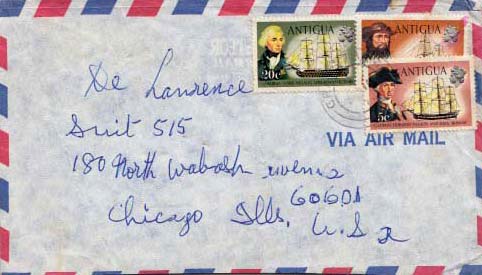 ANTIGUA
ANTIGUA
20c
ANTIGUA
5c
VIA AIR MAIL
De Lawrence
Suit 515
180 North Wabash avenue
60601
Chicago Ills. U.S.a